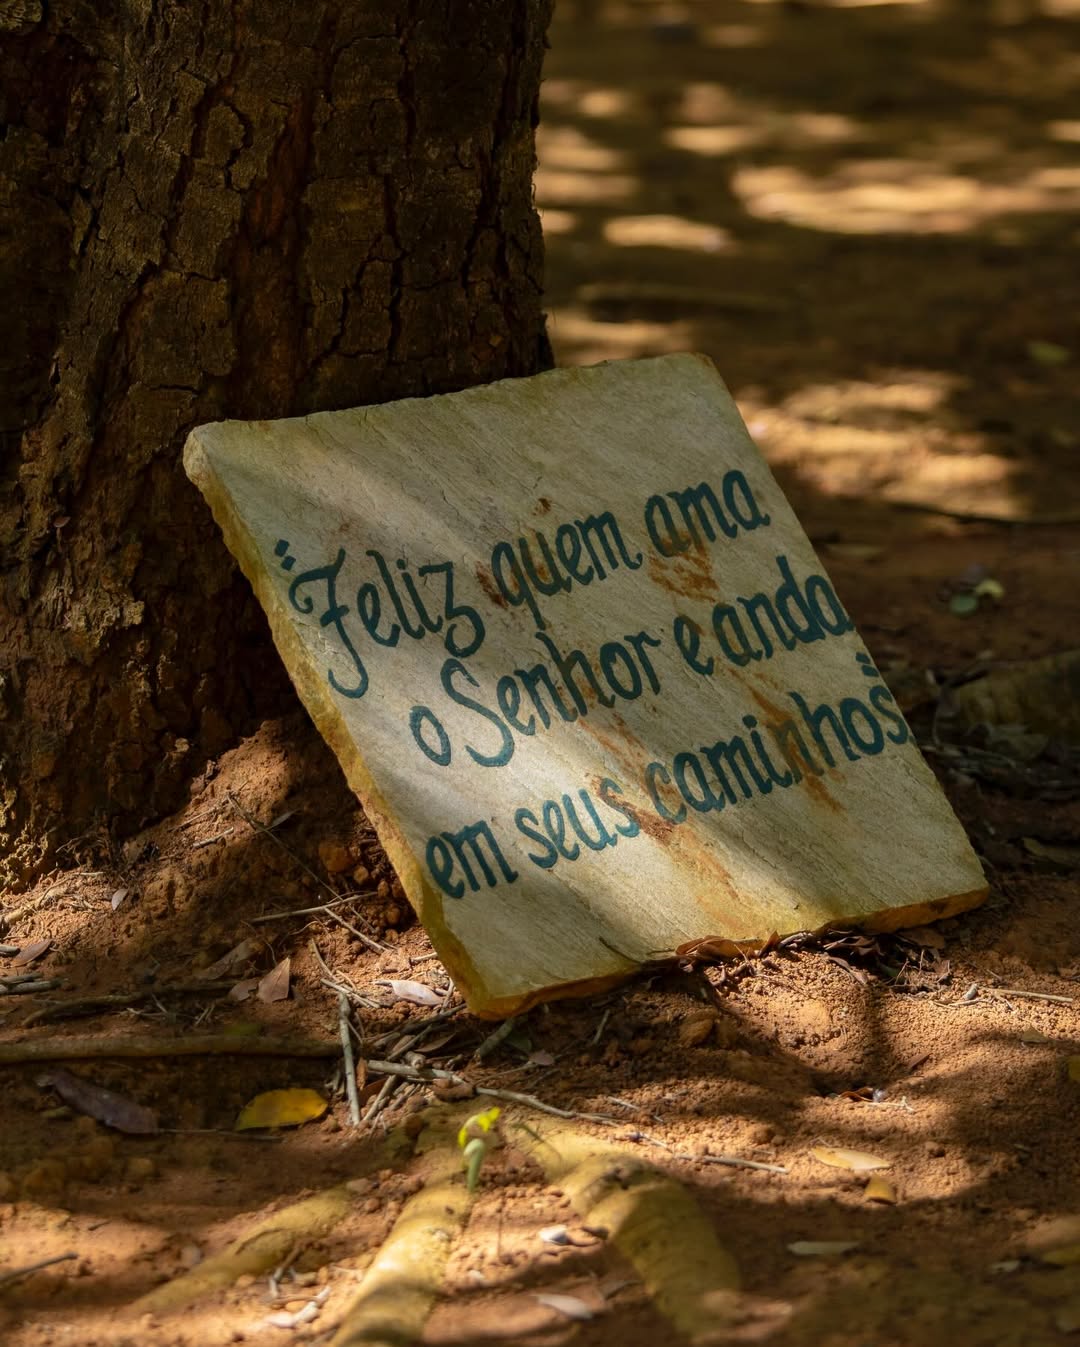 "Feliz quem ama
o Senhor e anda
em seus caminhos"